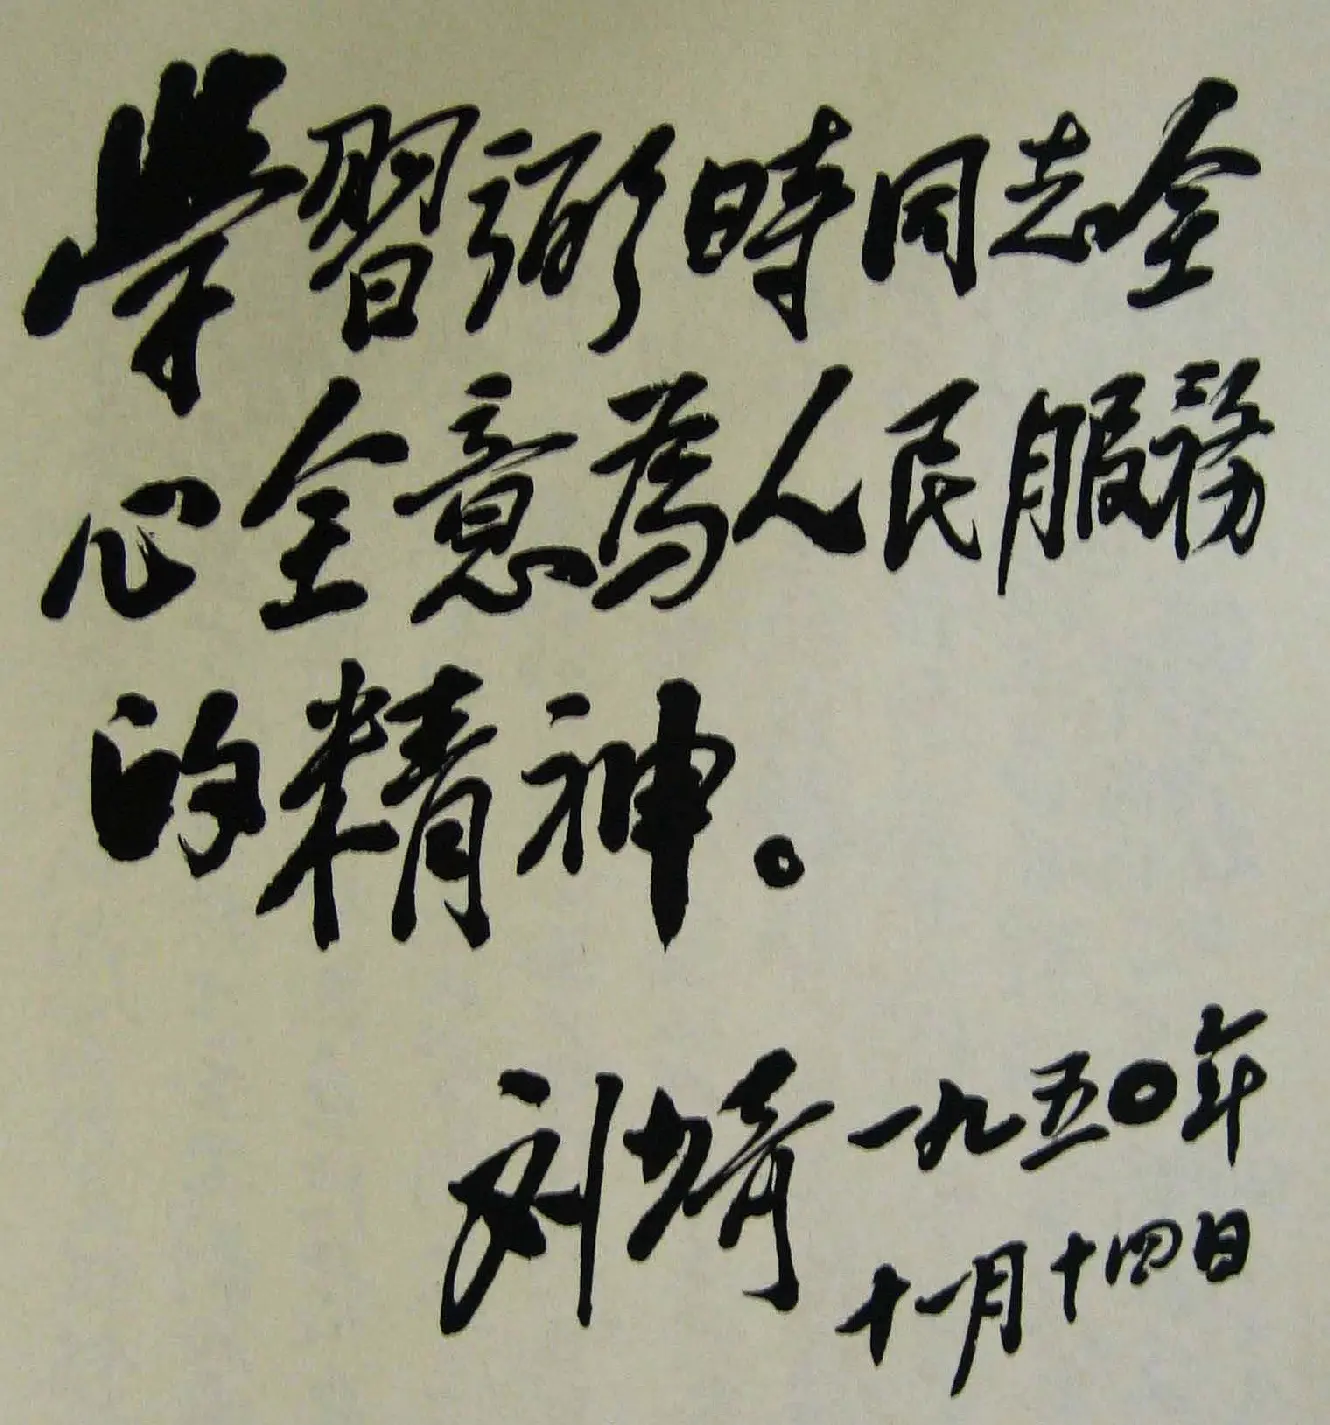 学習弼時同志全
心全意為人民服務
的精神。
刘少奇 一九五〇年
十一月十四日